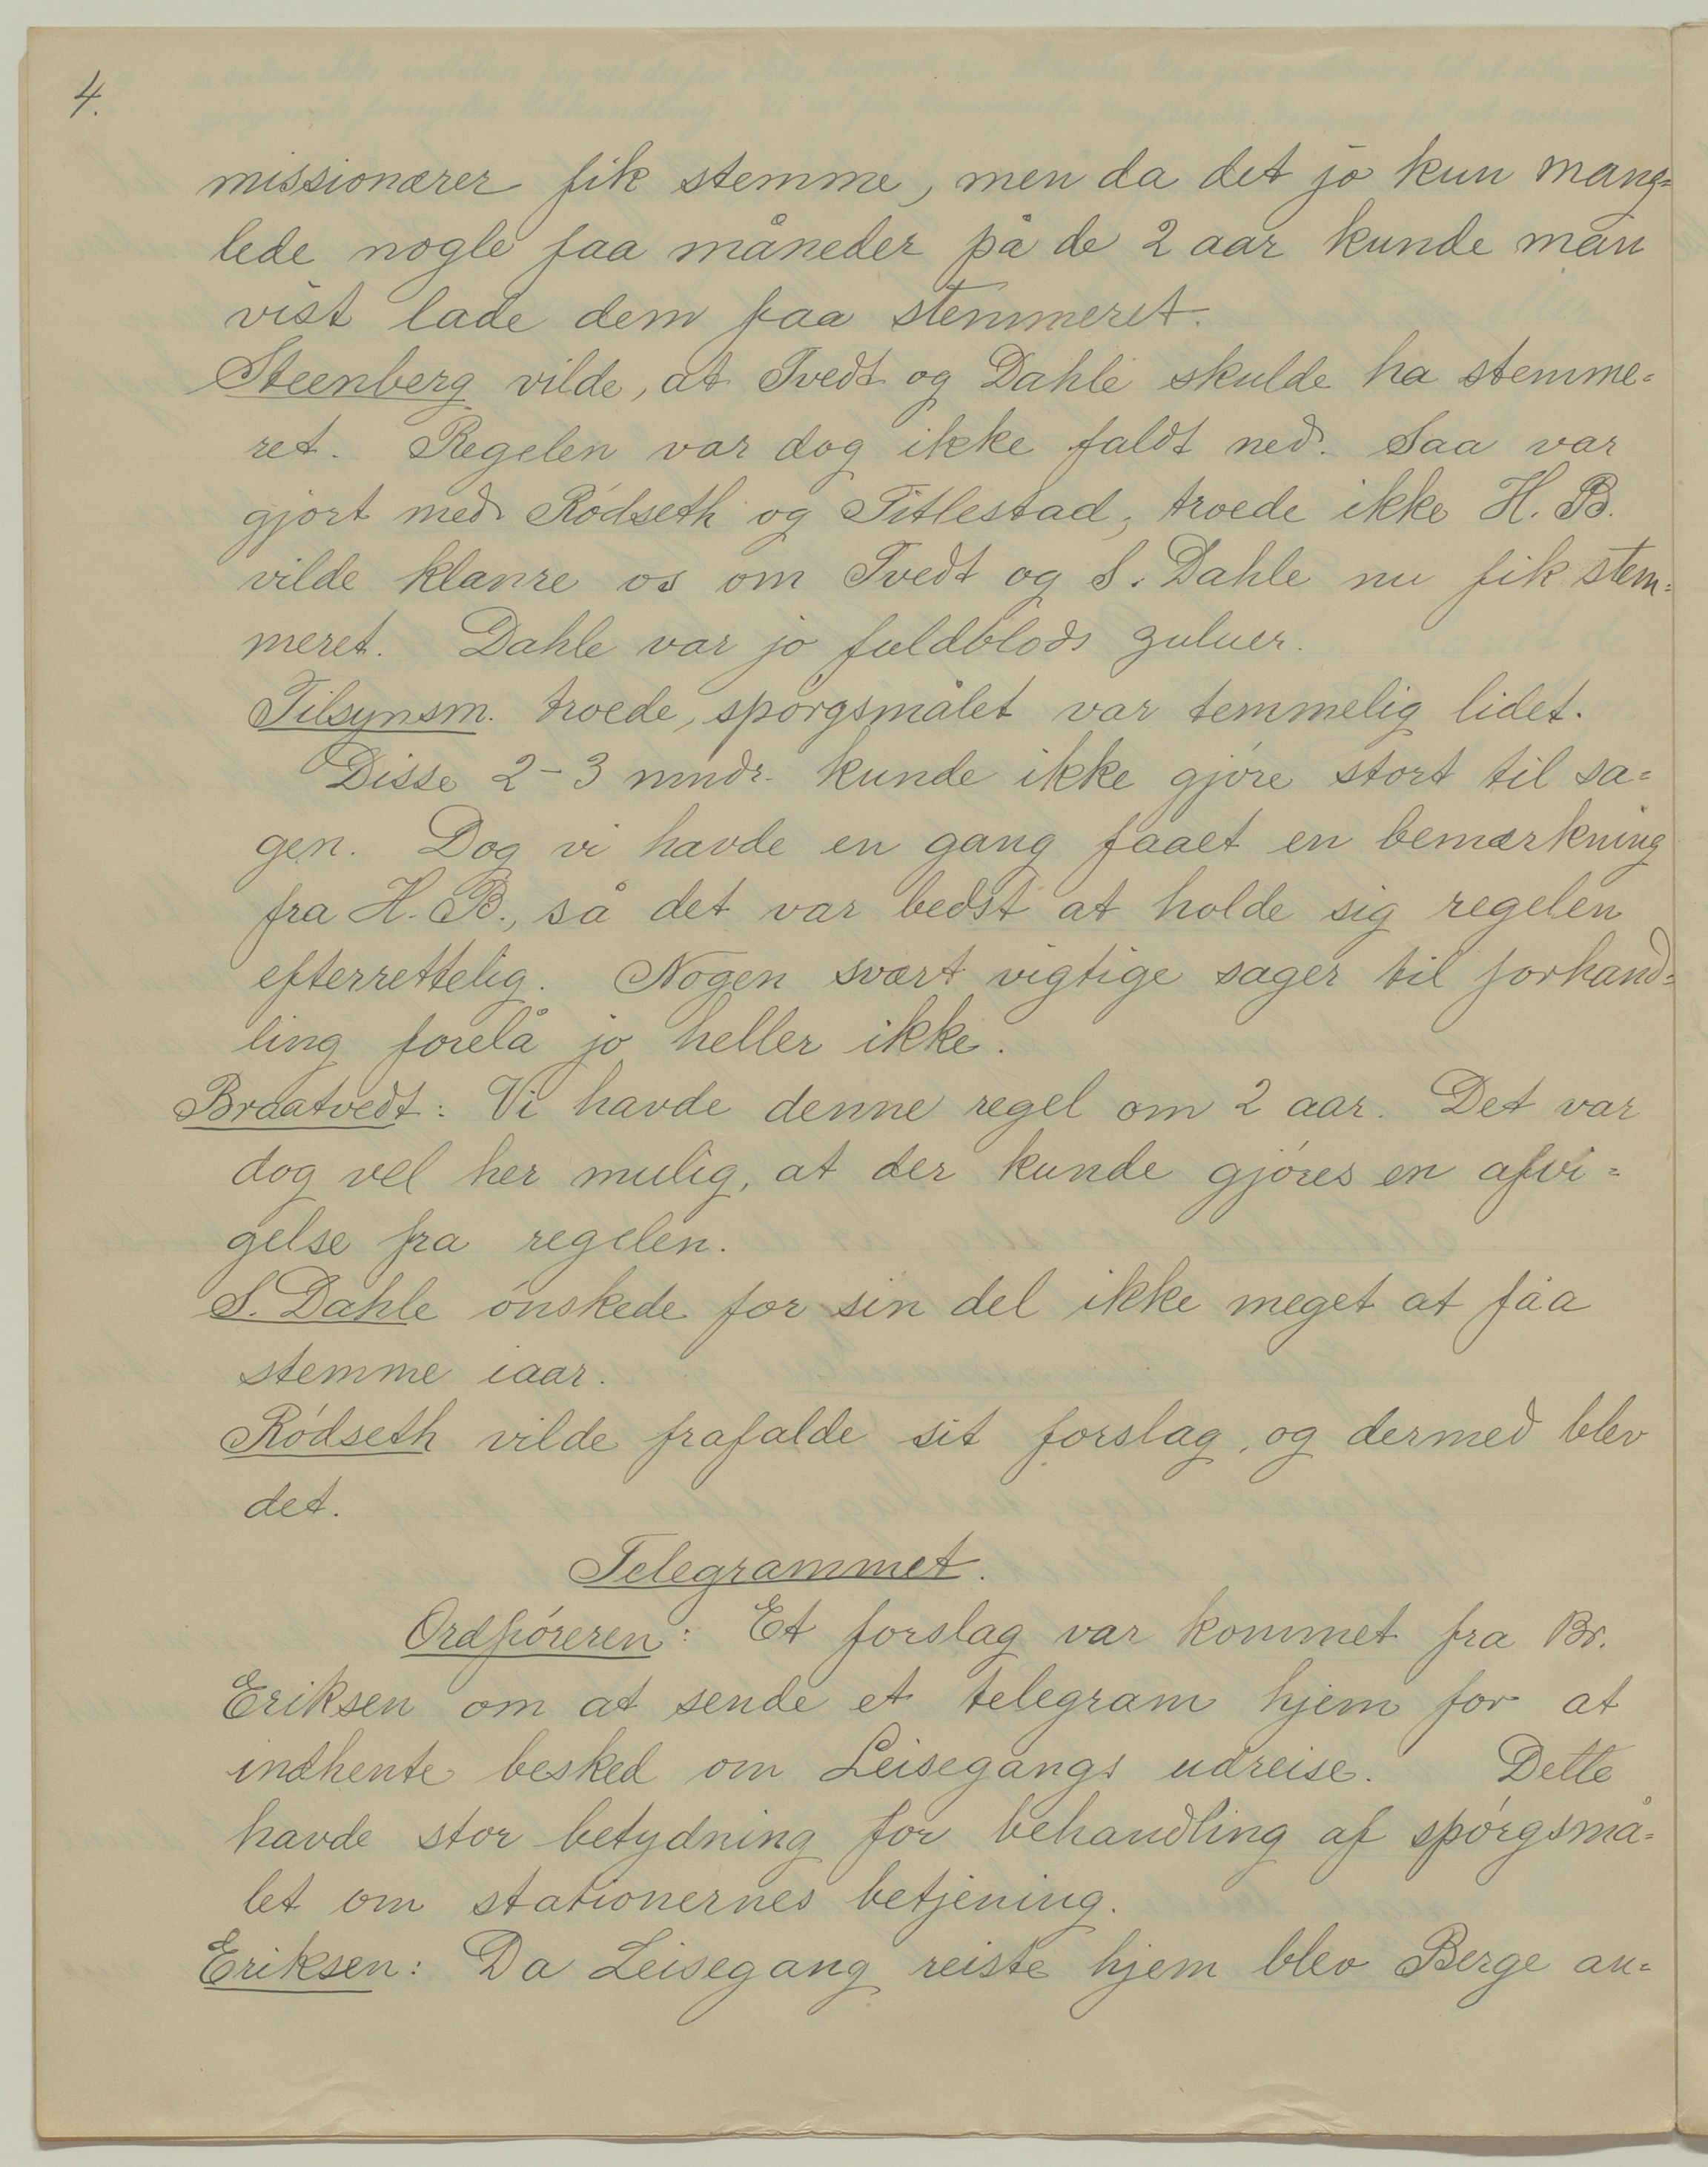 4.
missionærer fik stemme, men da det jo kun mang=
lede nogle faa måneder på de 2 aar kunde man
vist lade dem faa stemmeret.
Steenberg vilde, at Tvedt og Dahle skulde ha stemme=
ret. Regelen var dog ikke faldt ned. Saa var
gjort med Ródseth og Titlestad, troede ikke H. B.
vilde klanre os om Tvedt og S. Dahle nu fik stem=
meret. Dahle var jo fuldblods zuluer.
Tilsynsm. troede, spórgsmålet var temmelig lidet.
Disse 2-3 mndr. kunde ikke gjóre stort til sa=
gen. Dog vi havde en gang faaet en bemærkning
fra H. B., så det var bedst at holde sig regelen
efterrettelig. Nogen svært vigtige sager til forhand=
ling forelå jo heller ikke.
Braatvedt: Vi havde denne regel om 2 aar. Det var
dog vel her mulig, at der kunde gjóres en afvi=
gelse fra regelen.
S. Dahle ónskede for sin del ikke meget at faa
stemme iaar.
Ródseth vilde frafalde sit forslag, og dermed blev
det.
Telegrammet.
Ordfóreren: Et forslag var kommet fra Br.
Eriksen om at sende et telegram hjem for at
indhente besked om Leisegangs udreise. Dette
havde stor betydning for behandling af spórgsmå=
let om stationernes betjening.
Eriksen: Da Leisegang reiste hjem blev Berge an=